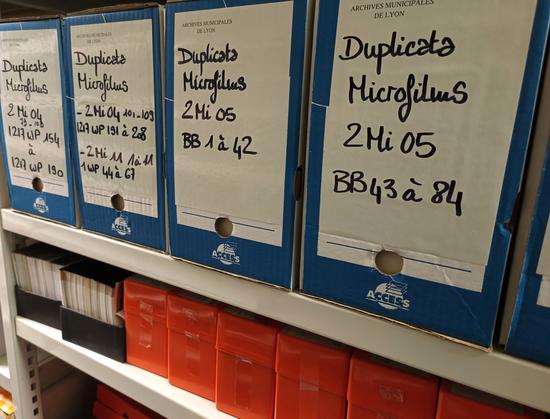 ARCHIVES MUNICIPALES
DE LYON
Duplicata
Microfilms
2 Mi 04
1217 WP 154
à
1217 WP 190
ARCHIVES MUNICIPALES
DE LYON
Duplicata
Microfilms
- 2 Mi 04 101-109
1217 WP 191 à 228
- 2 Mi 11 1 à 11
1 WP 44 à 67
ARCHIVES MUNICIPALES
DE LYON
Duplicata
Microfilms
2 Mi 05
BB 1 à 42
ARCHIVES MUNICIPALES
DE LYON
Duplicata
Microfilms
2 Mi 05
BB 43 à 84
ACCESS
ACCESS
ACCESS
ACCESS